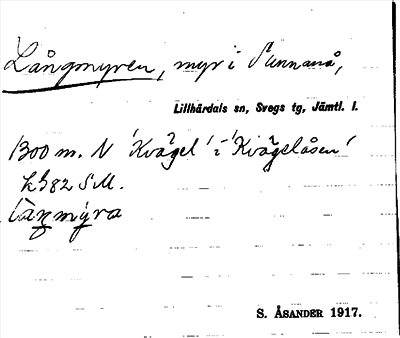 Långmyren, myr i Sunnanå,
Lillhärdals sn, Svegs tg, Jämtl. l.
1300 m. N 'Kvägel' i 'Kvägelåsen'
82 S.M.
S. ÅSANDER 1917.